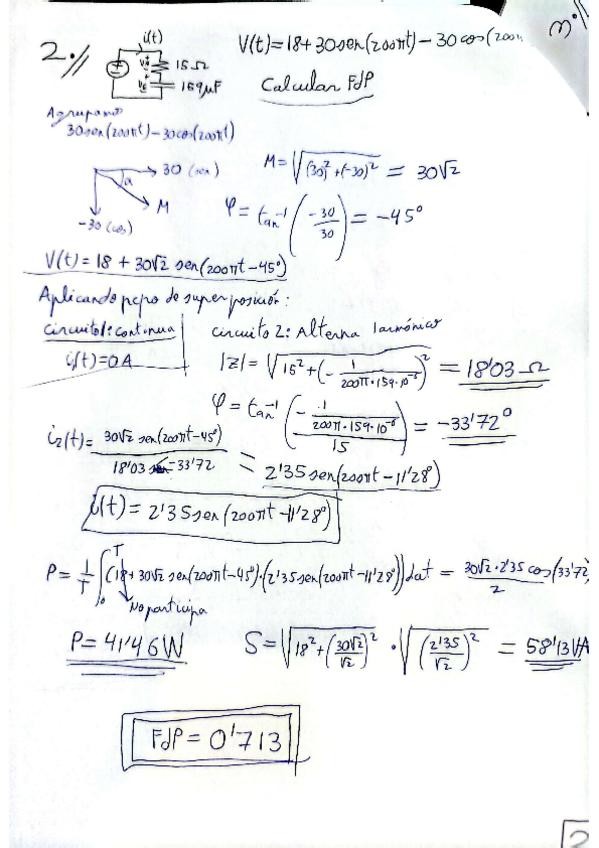 2.//
i(t)
15Ω
159μF
V(t)=18+30sen(200πt)-30cos(200π
Calcular FdP
Agrupamos
30sen(200πt)-30cos(200πt)
30 (sen)
α
M
-30 (cos)
M=√((30)²+(-30)²) = 30√2
φ=tan⁻¹(-30/30)=-45°
V(t)=18+30√2 sen(200πt-45°)
Aplicando pcpo de superposición:
circuito1: continua
i₁(t)=0A
circuito 2: Alterna 1armónico
|Z|=√(15²+(-1/(200π·159·10⁻⁶))²) = 18'03 Ω
φ=tan⁻¹((-1/(200π·159·10⁻⁶))/15) = -33'72°
i₂(t)=30√2 sen(200πt-45°)/18'03 -33'72 = 2'35sen(200πt-11'28°)
i(t)=2'35sen(200πt-11'28°)
P=1/T∫₀ᵀ(18+30√2 sen(200πt-45°)·(2'35sen(200πt-11'28°))dωt = 30√2·2'35cos(33'72)/2
No participa
P=41'46W
S=√(18²+(30√2/√2)²)·√((2'35/√2)²) = 58'13VA
FdP=0'713
2